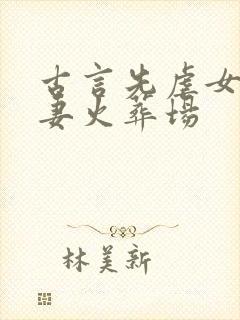 古言先虐女
妻火葬场
林美新